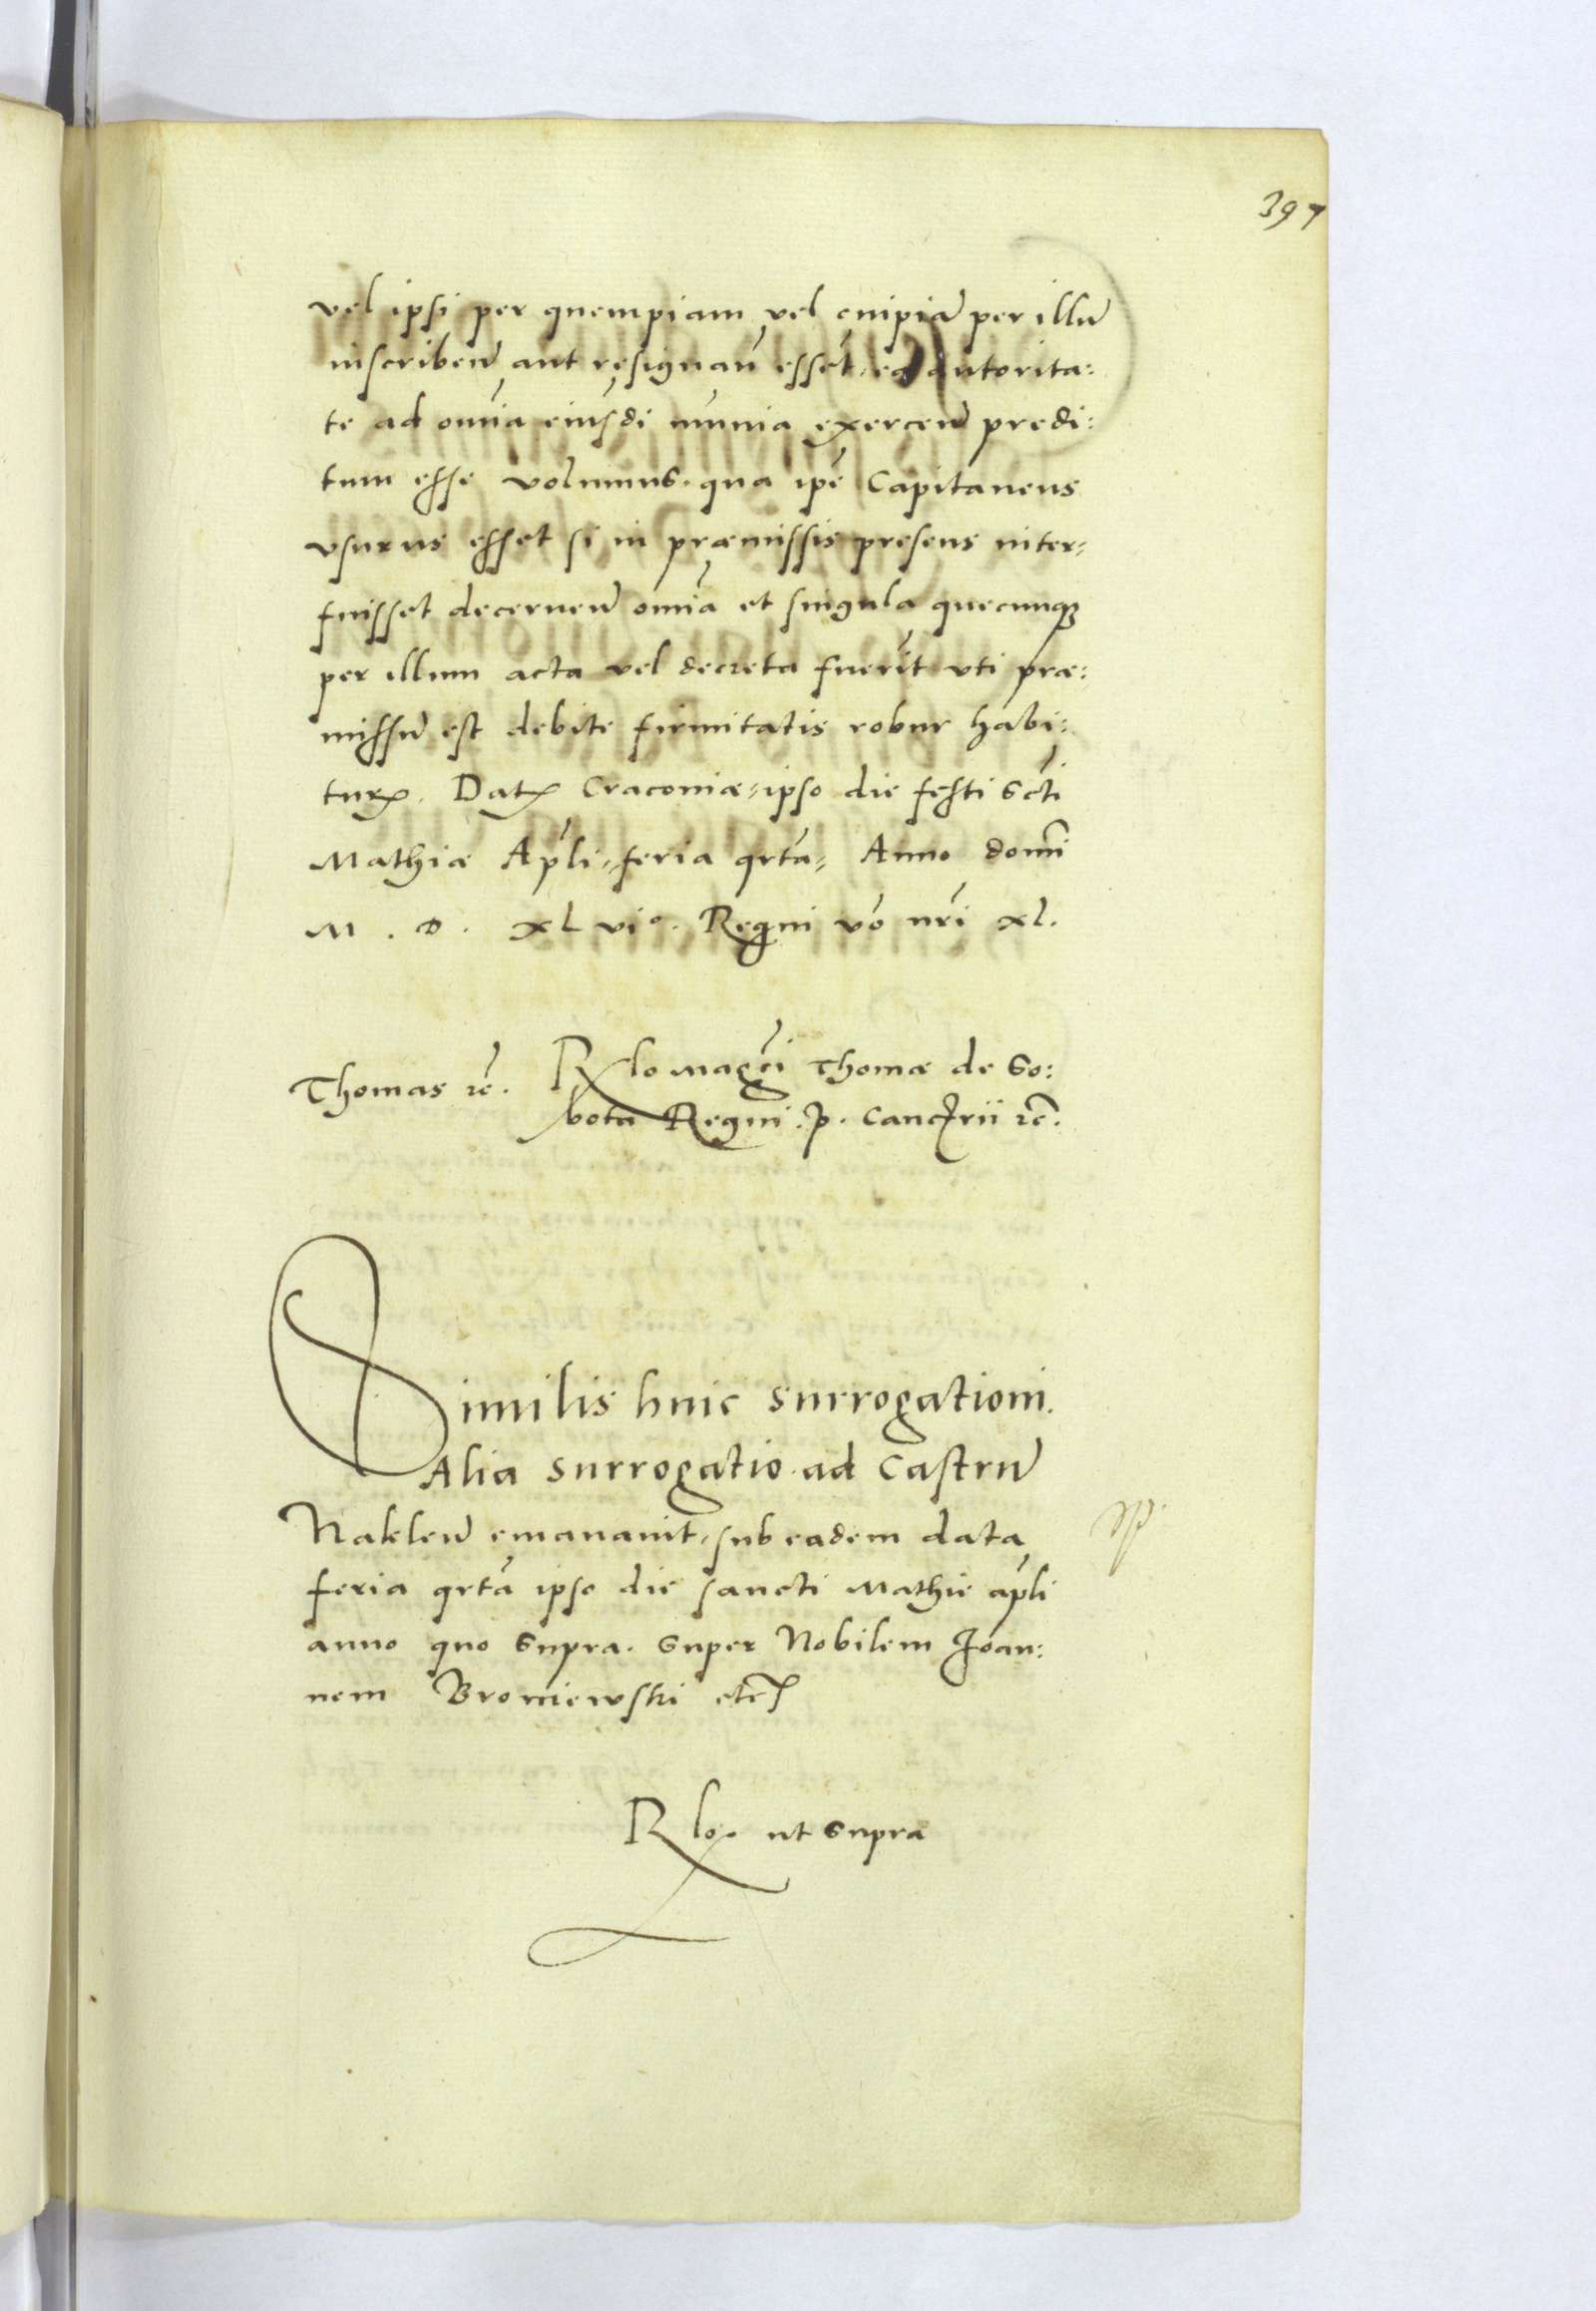 397
vel ipsi per quempiam vel cuipiã per illũ
inscribeñ aut resignañ esset, ea autorita:
te ad om̃ia eiusdẽ munia exerceñ predi:
tum esse volumus. qua ip̃e Capitaneus
vsurus esset si in præmissis presens inter-
fuisset decerneñ om̃ia et singula quecunq;
per illum acta vel decreta fuerĩt vti præ:
missũ est debite firmitatis robur habi:
turꝝ. Datꝝ Cracouiæ ipso die festi Scti
Mathiæ Ap̃li feria qrtã Anno domĩ
M . D . XL vi°. Regni v̊o nr̃i xl.
Thomas rc̃. Rlo Magc̃i Thomæ de So:
bota Regni . p . Cancꝉrii rc̃.
Similis huic surrogationi.
Alia surrogatio ad Castrũ
Nakleñ emanauit, sub eadem data
feria qrtã ipso die sancti Mathie ap̃li
anno quo supra. super Nobilem Joan:
nem Broniewski etc̃
Rlo. ut supra